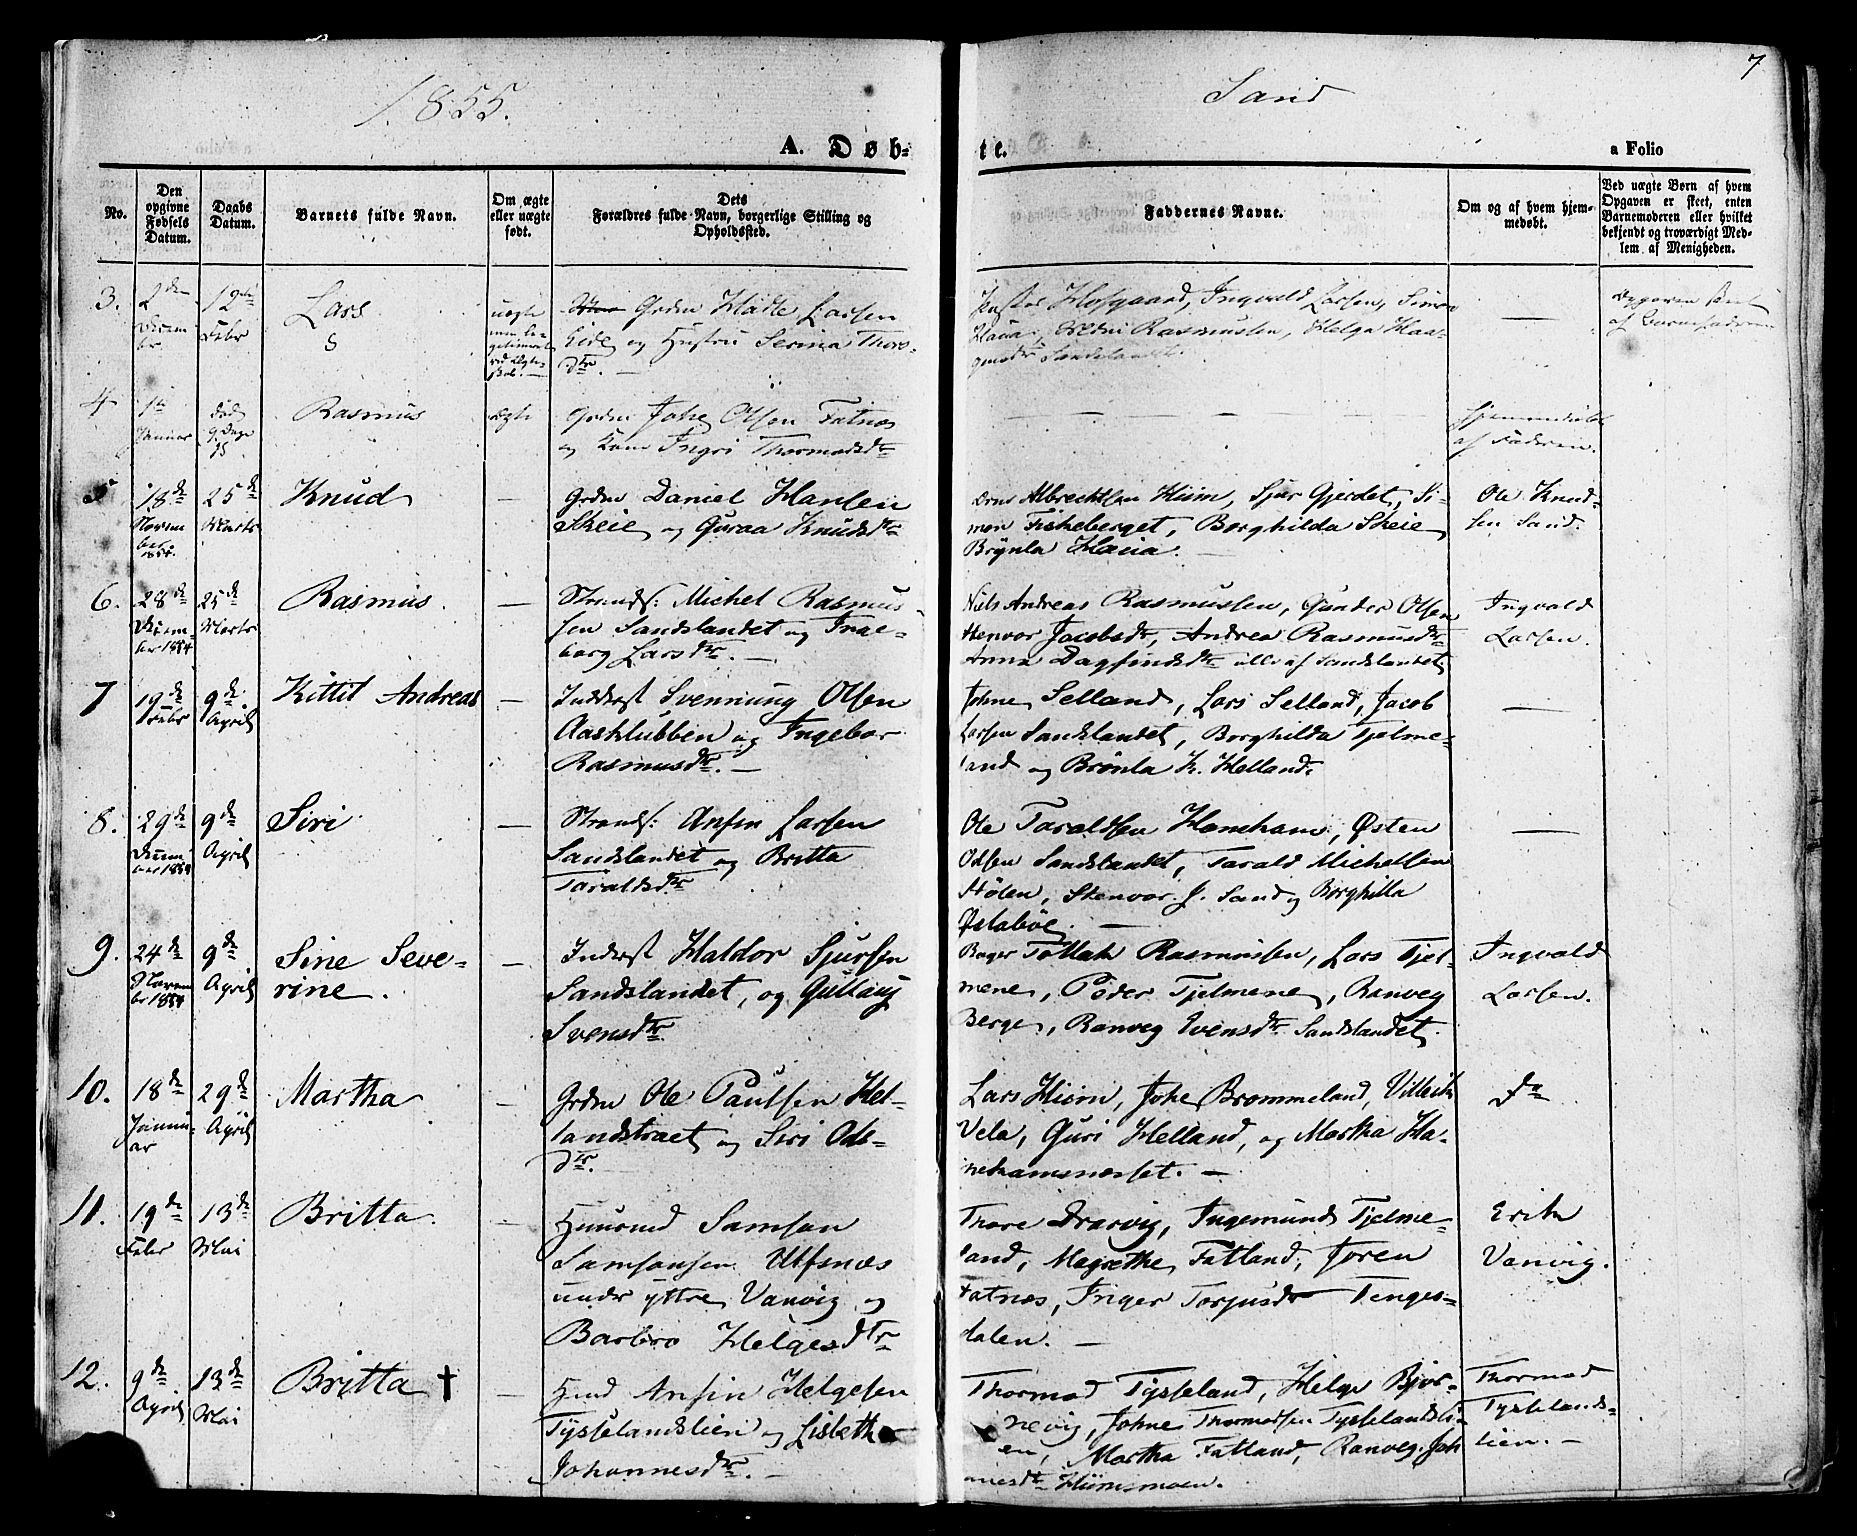 1855.
Sand
7
A. Døb-
te.
a Folio
No.
Den opgivne Fødsels Datum.
Daabs Datum.
Barnets fulde Navn.
Om ægte eller uægte født.
Dets Forældres fulde Navn, borgerlige Stilling og Opholdssted.
Faddernes Navne.
Om og af hvem hjemmedøbt.
Ved uægte Børn af hvem Opgaven er skeet, enten Barnemoderen eller hvilket bekjendt og troværdigt Medlem af Menigheden.
3.
2den
Decem
br
12te
Febr
Lars
uægte
Grdm
Larsen
Eide og Hustru Serina Thors-
dtr. —
Hofgaard, Ingvald Larsen, Simon
Rasmussen, Helga Haa-
Sandslandet.
—
Opgaven skeet
af Barnefaderen
4
1ste
Januar
død
9 Dage
Rasmus
ægte
Grdm Johs Olsen Fatnæs
og Kone Ingri Thormodsdtr
Hjemmedøbt
af Faderen.
5
18de
Novem
ber
1854.
25de
Marts
Knud
—
Grdm Daniel Hansen
Skeie og Guraa Knudsdtr
Albrechtsen Hiim, Sjur Gjerdet, Si-
mon Fiskeberget, Borghilda Skeie,
Brynla Havia. —
Ole Knud-
sen Sand.
6.
28de
Decem-
ber 1854
25de
Marts
Rasmus.
—
Strands: Michel Rasmus-
sen Sandslandet og Inge-
borg Larsdtr. —
Niels Andreas Rasmussen, Gunder Olsen
Stenvor Jacobsdtr, Andrea Rasmusdtr
Anna Dagfindsdtr alle af Sandslandet
Ingvald
Larsen.
7
19de
Febr
9de
April
Kittil Andreas
—
Inderst Svennung Olsen
Aasklubben og Ingebor
Rasmusdtr. —
Johne Selland, Lars Selland, Jacob
Larsen Sandslandet, Borghilda Tjelme-
land og Brønla K. Helland.
—
8.
29de
Decem
ber 1854
9de
April
Siri
—
Strands: Anfin Larsen
Sandslandet og Britta
Taraldsdtr
Ole Taraldsen Haneham, Østen
Odsen Sandslandet, Tarald Michelsen
Stølen, Stenvor J. Sand og Borghilla
Østabøe. —
—
9.
24de
Novem
ber 1854
9de
April
Sine Seve-
rine.
—
Inderst Haldor Sjursen
Sandslandet, og Gullaug
Svensdtr.
Bager Tollak Rasmussen, Lars Tjel-
mene, Peder Tjelmene, Ranveg
Berge, Ranveg Svensdtr Sandslandet.
Ingvald
Larsen.
10.
18de
Janu-
ar
29de
April
Martha
—
Grdm Ole Paulsen Hel-
landstræet og Siri Ods-
dtr.
Lars Hiim, Johs Brommeland, Villeik
Vela, Guri Helland, og Martha Ha-
nehamsnæsset. —
Do
11.
19de
Febr
13de
Mai
Britta.
—
Huusmd Samson
Samsonsen Ulfsnæs
under yttre Vanvig og
Barbro Helgesdtr
Thore Drarvig, Ingemund Tjelme-
land, Magrethe Fatland, Joren
Fatnæs, Inger Torjusdtr Tenges-
dalen. —
Erik
Vanvig.
12.
9de
April
13de
Mai
Britta †
—
Husmd Anfin Helgesen
Tysselandslien og Lisbeth
Johannesdtr. —
Thormod Tysseland, Helge Bjør-
nevig, Johne Thormodsen Tysselandsli-
en, Martha Fatland, Ranveg Joh
nnesdtr Hiimsmoen.
Thormod
Tysselands-
lien. —